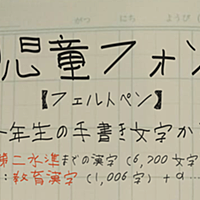 がつ にち ようび
児童フォン
【フェルトペン】
年生の手書き文字か
第二水準までの漢字（6,700文字
：教育漢字（1,006字）＋α